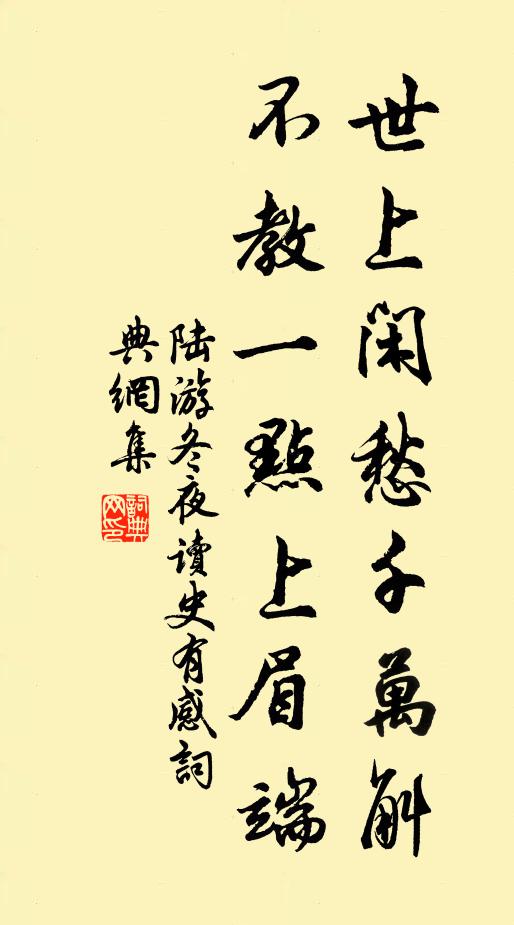 世上閑愁千萬斛
不教一點上眉端
陆游冬夜讀史有感詞
典網集
詞典网印